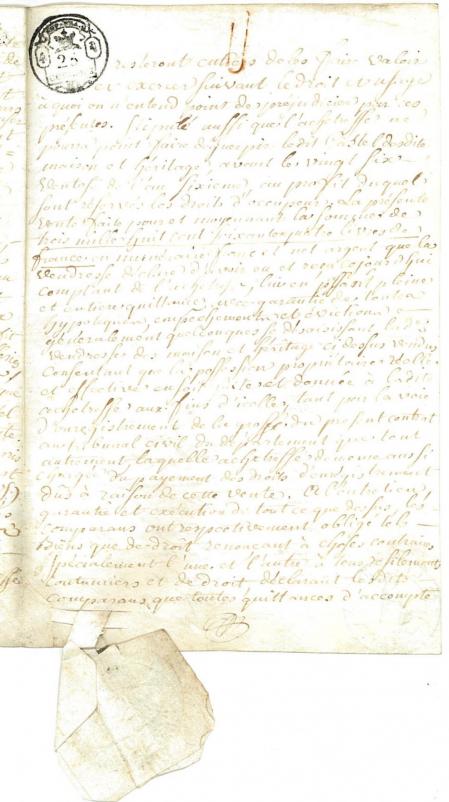 25
resteront entiers de les faire valoir
et exercer suivant le droit et usage
a quoi on n'entend point de prejudicier par ces
présentes. Stipulé aussi que l'achetresse ne
pourra point faire deguerpir ledit Castel desdits
maison et héritage avant le vingt six
Ventose de l'an sixieme, au profit duquel
sont réservés les droits d'occupeur. La présente
vente faite pour et moyennant la somme de
trois mille huit cent soixante quatre livres de
france en numéraire franc il not argent que la
vendresse déclare avoir eu et reçu ce jourd'hui
comptant de l'achetresse, lui en passant pleine
et entiere quittance, avec garantie de toutes
hypotèques, empeschements et évictions
généralement quelconques se désaisissant ladite
vendresse des maison et héritage ci dessus vendus
Consentant que la possession propriétaire réelle
et effective en soit et donnée à ladite
achetresse aux fins d'icelle, tant par la voie
d'enregistrement de la grosse du présent contrat
au tribunal civil du département que tout
autrement, laquelle achetresse demeure aussi
chargée du payement des droits d'enregistrement
dus à raison de cette vente. A l'entretien
garantie et exécution de tout ce que dessus, les
comparans ont respectivement obligé leurs
biens que de droit renonçant à choses contraires
spécialement l'une et l'autre à leurs
coutumiers et de droit déclarant lesdits
comparans que toutes quittances d'accompte